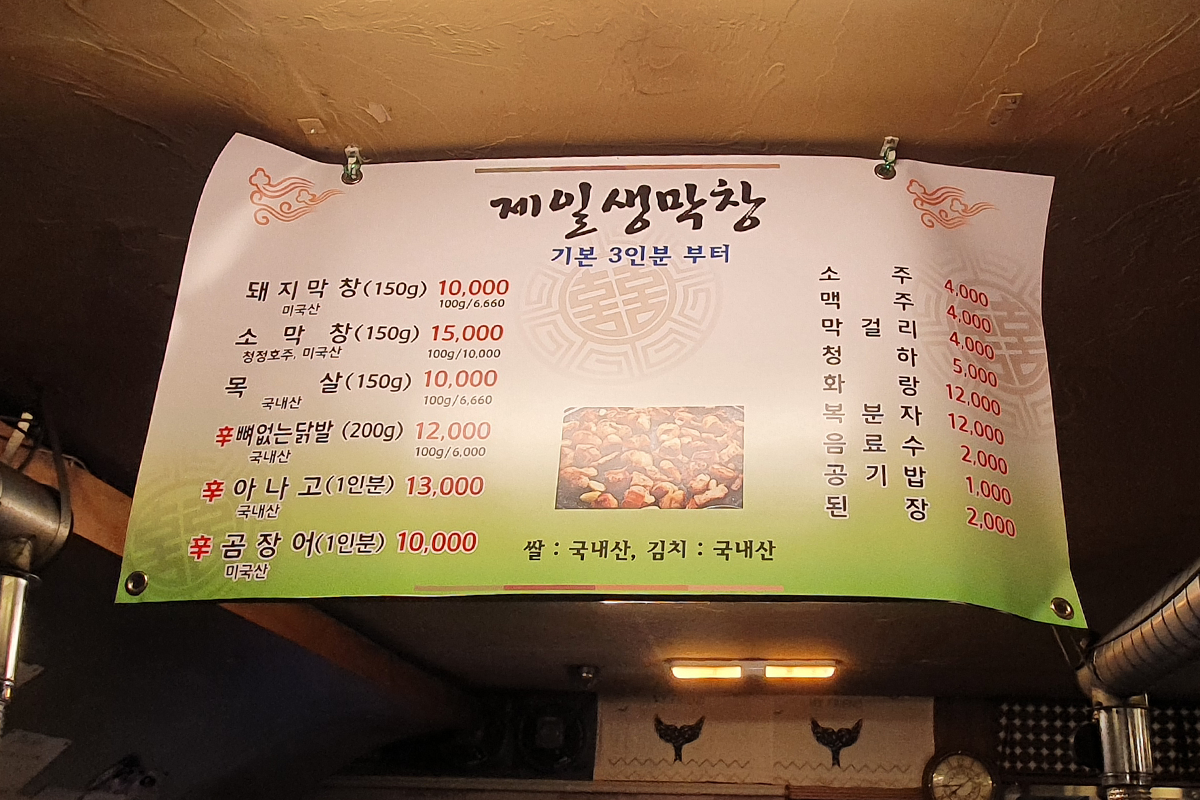 제일생막창
기본 3인분 부터
돼지막창(150g) 10,000
미국산 100g/6,660
소막창(150g) 15,000
청정호주, 미국산 100g/10,000
목살(150g) 10,000
국내산 100g/6,660
辛뼈없는닭발 (200g) 12,000
국내산 100g/6,000
辛 아나고(1인분) 13,000
국내산
辛 곰장어(1인분) 10,000
미국산
소주 4,000
맥주 4,000
막걸리 4,000
청하 5,000
화랑 12,000
복분자 12,000
음료수 2,000
공기밥 1,000
된장 2,000
쌀 : 국내산, 김치 : 국내산